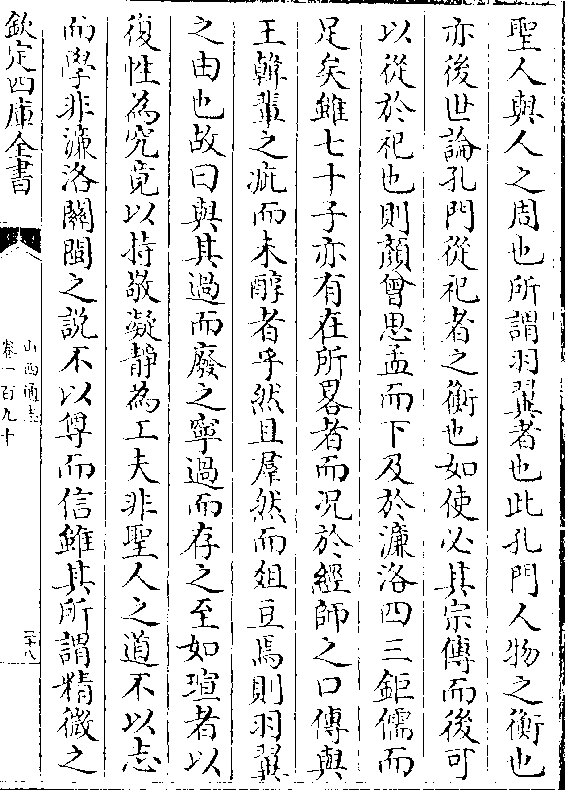 聖人與人之周也所謂羽翼者也此孔門人物之衡也
亦後世論孔門從祀者之衡也如使必其宗傳而後可
以從於祀也則顔曾思孟而下及於濂洛四三鉅儒而
足矣雖七十子亦有在所畧者而况於經師之口傳與
王韓輩之疵而未醇者乎然且羣然而俎豆焉則羽翼
之由也故曰與其過而廢之寧過而存之至如瑄者以
復性為究竟以持敬凝靜為工夫非聖人之道不以志
而學非濂洛關閩之説不以尊而信雖其所謂精微之
欽定四庫全書
山西通志
卷一百九十
二十八